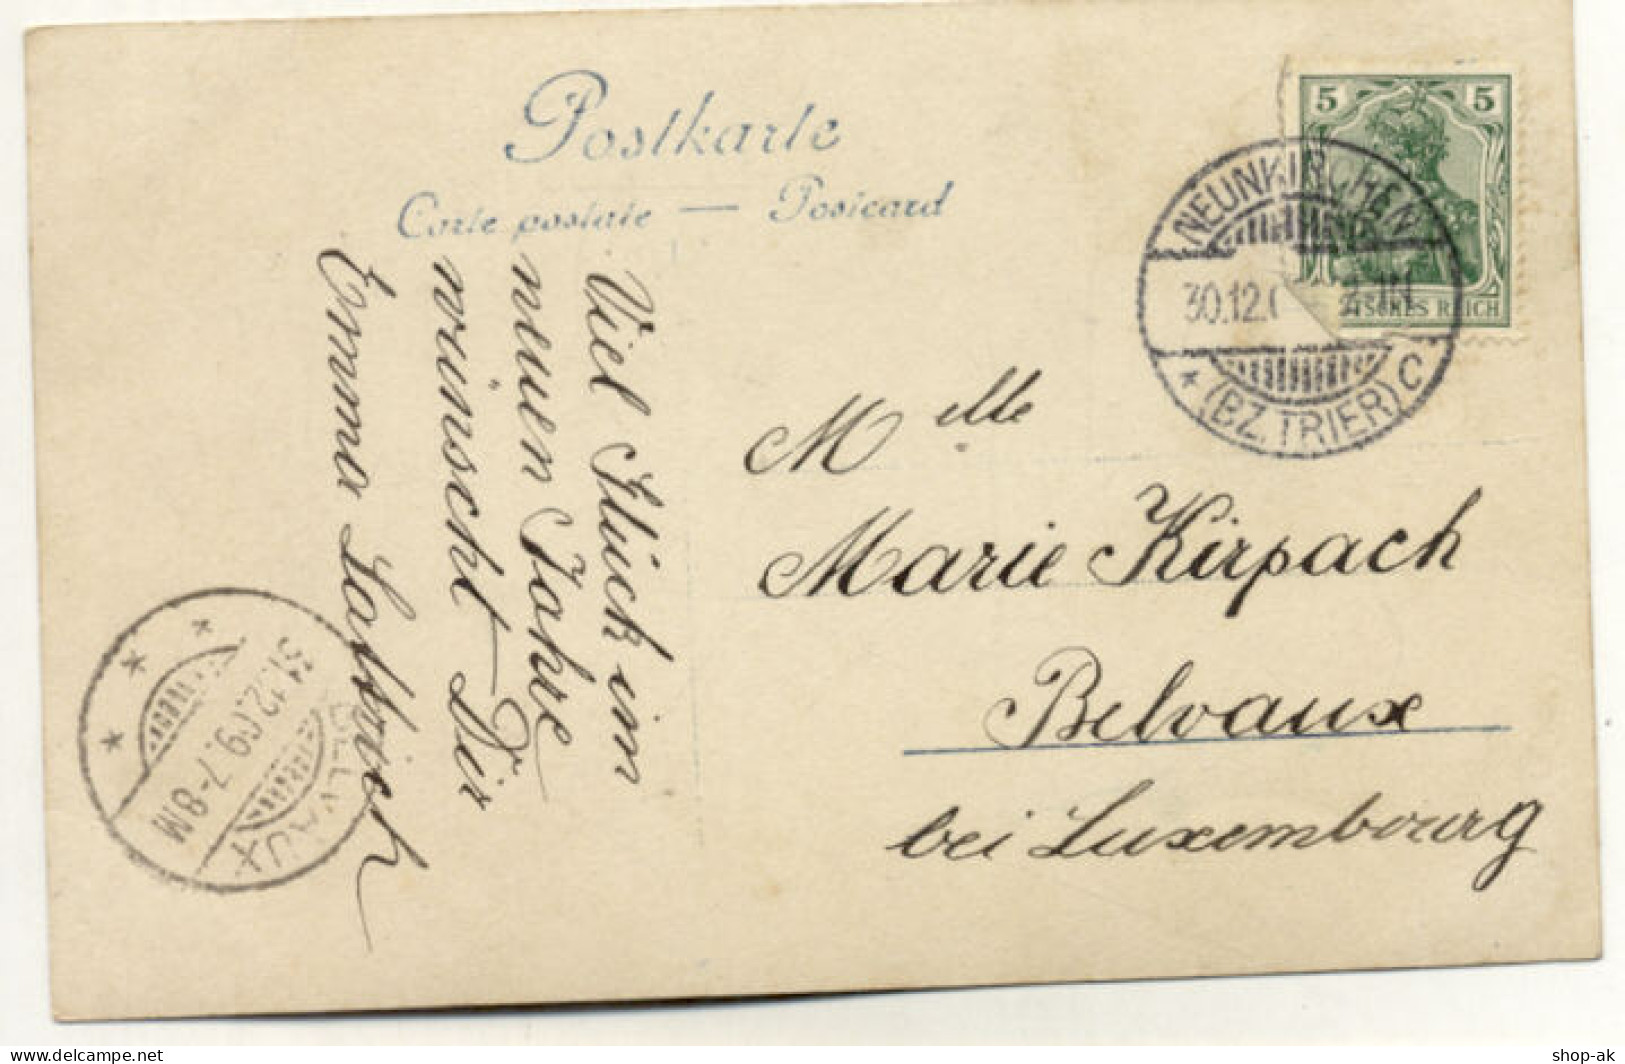 Postkarte
Carte postale — Postcard
5 5
DEUTSCHES REICH
NEUNKIRCHEN
30.12.
* (BZ. TRIER) C
Viel Glück im
neuen Jahre
wünscht Dir
Emma
Mlle
Marie Kirpach
Belvaux
bei Luxembourg
BELVAUX
31.12.09. 7-8M
shop-ak